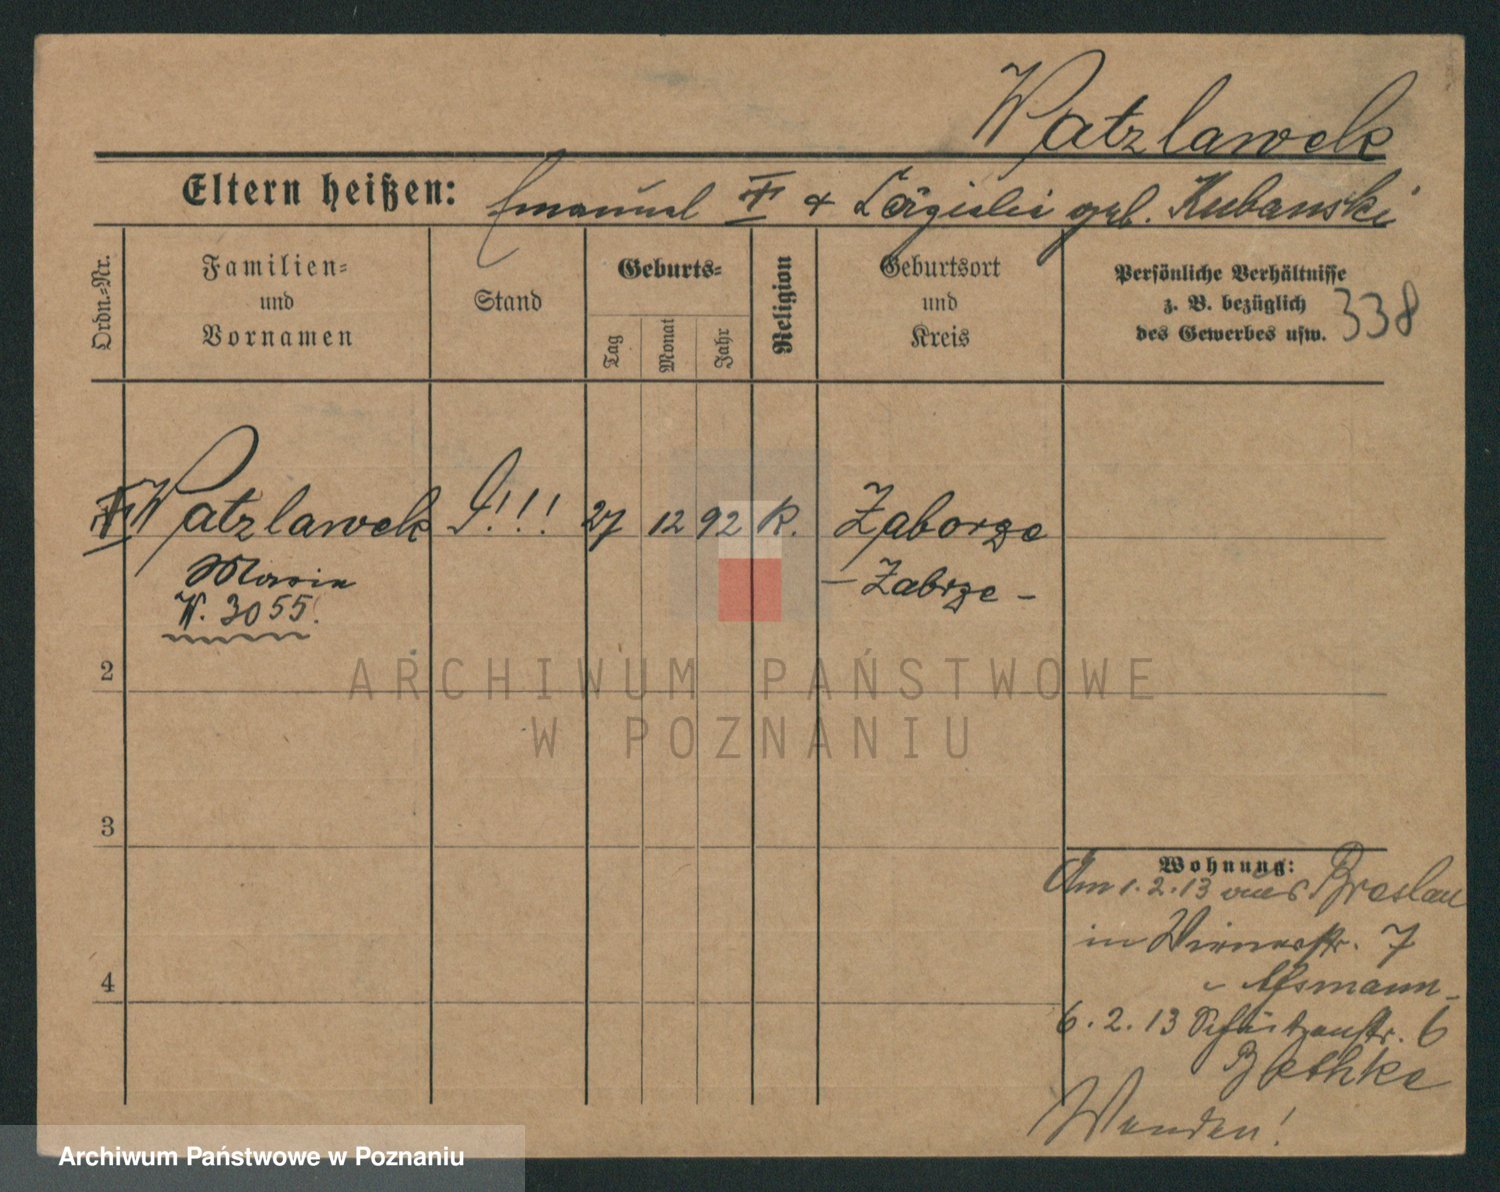 Watzlawek
Eltern heißen: Emanuel & geb. Kubanski
Ordn.-Nr.
Familien-
und
Vornamen
Stand
Geburts-
Tag
Monat
Jahr
Religion
Geburtsort
und
Kreis
Persönliche Verhältnisse
z. B. bezüglich
des Gewerbes usw.
338
Watzlawek !!! 27 12 92 K. Zaborze
Marie
- Zabrze -
W. 3055.
2
ARCHIWUM PAŃSTWOWE
W POZNANIU
3
Wohnung:
Am 1.2.13 aus Breslau
in Wienerstr. 7
Assmann -
4
6.2.13 Schützenstr. 6
Bethke
Wenden!
Archiwum Państwowe w Poznaniu